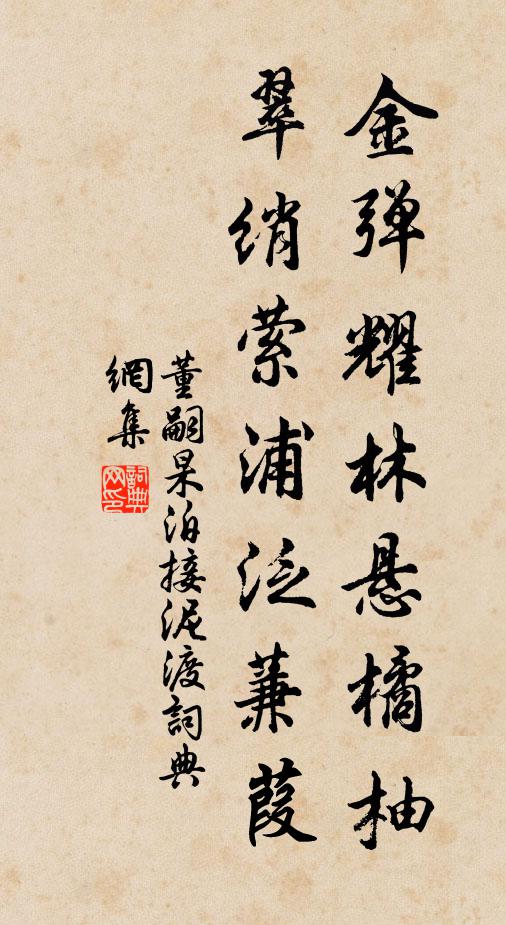 金弹耀林悬橘柚
翠绡萦浦泛蒹葭
董嗣杲泊接泥渡詞典
網集
詞典
网印